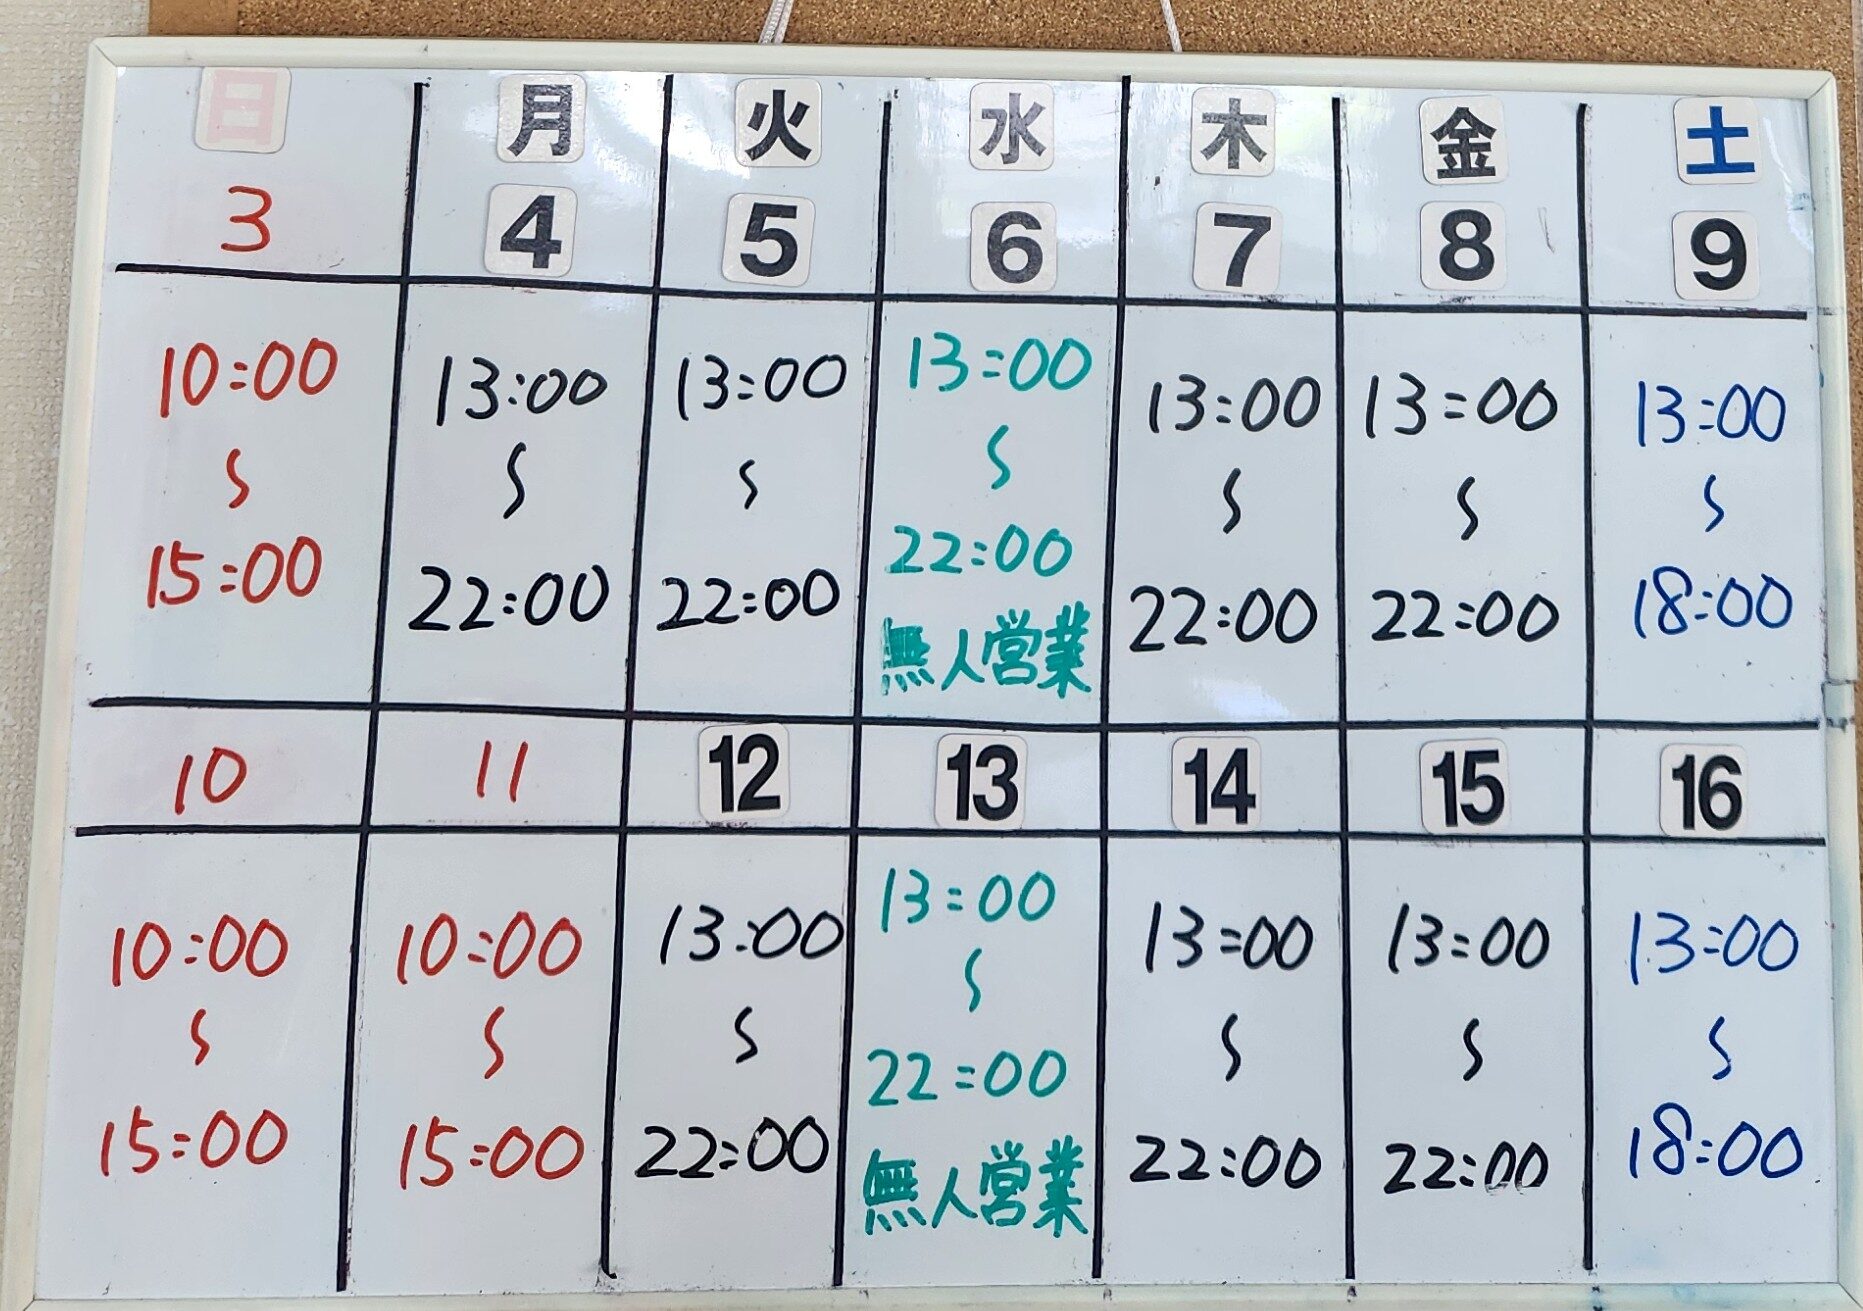 日 月 火 水 木 金 土
3 4 5 6 7 8 9
10:00 13:00 13:00 13:00 13:00 13:00 13:00
～ ～ ～ ～ ～ ～ ～
15:00 22:00 22:00 22:00 22:00 22:00 18:00
無人営業
10 11 12 13 14 15 16
10:00 10:00 13:00 13:00 13:00 13:00 13:00
～ ～ ～ ～ ～ ～ ～
15:00 15:00 22:00 22:00 22:00 22:00 18:00
無人営業